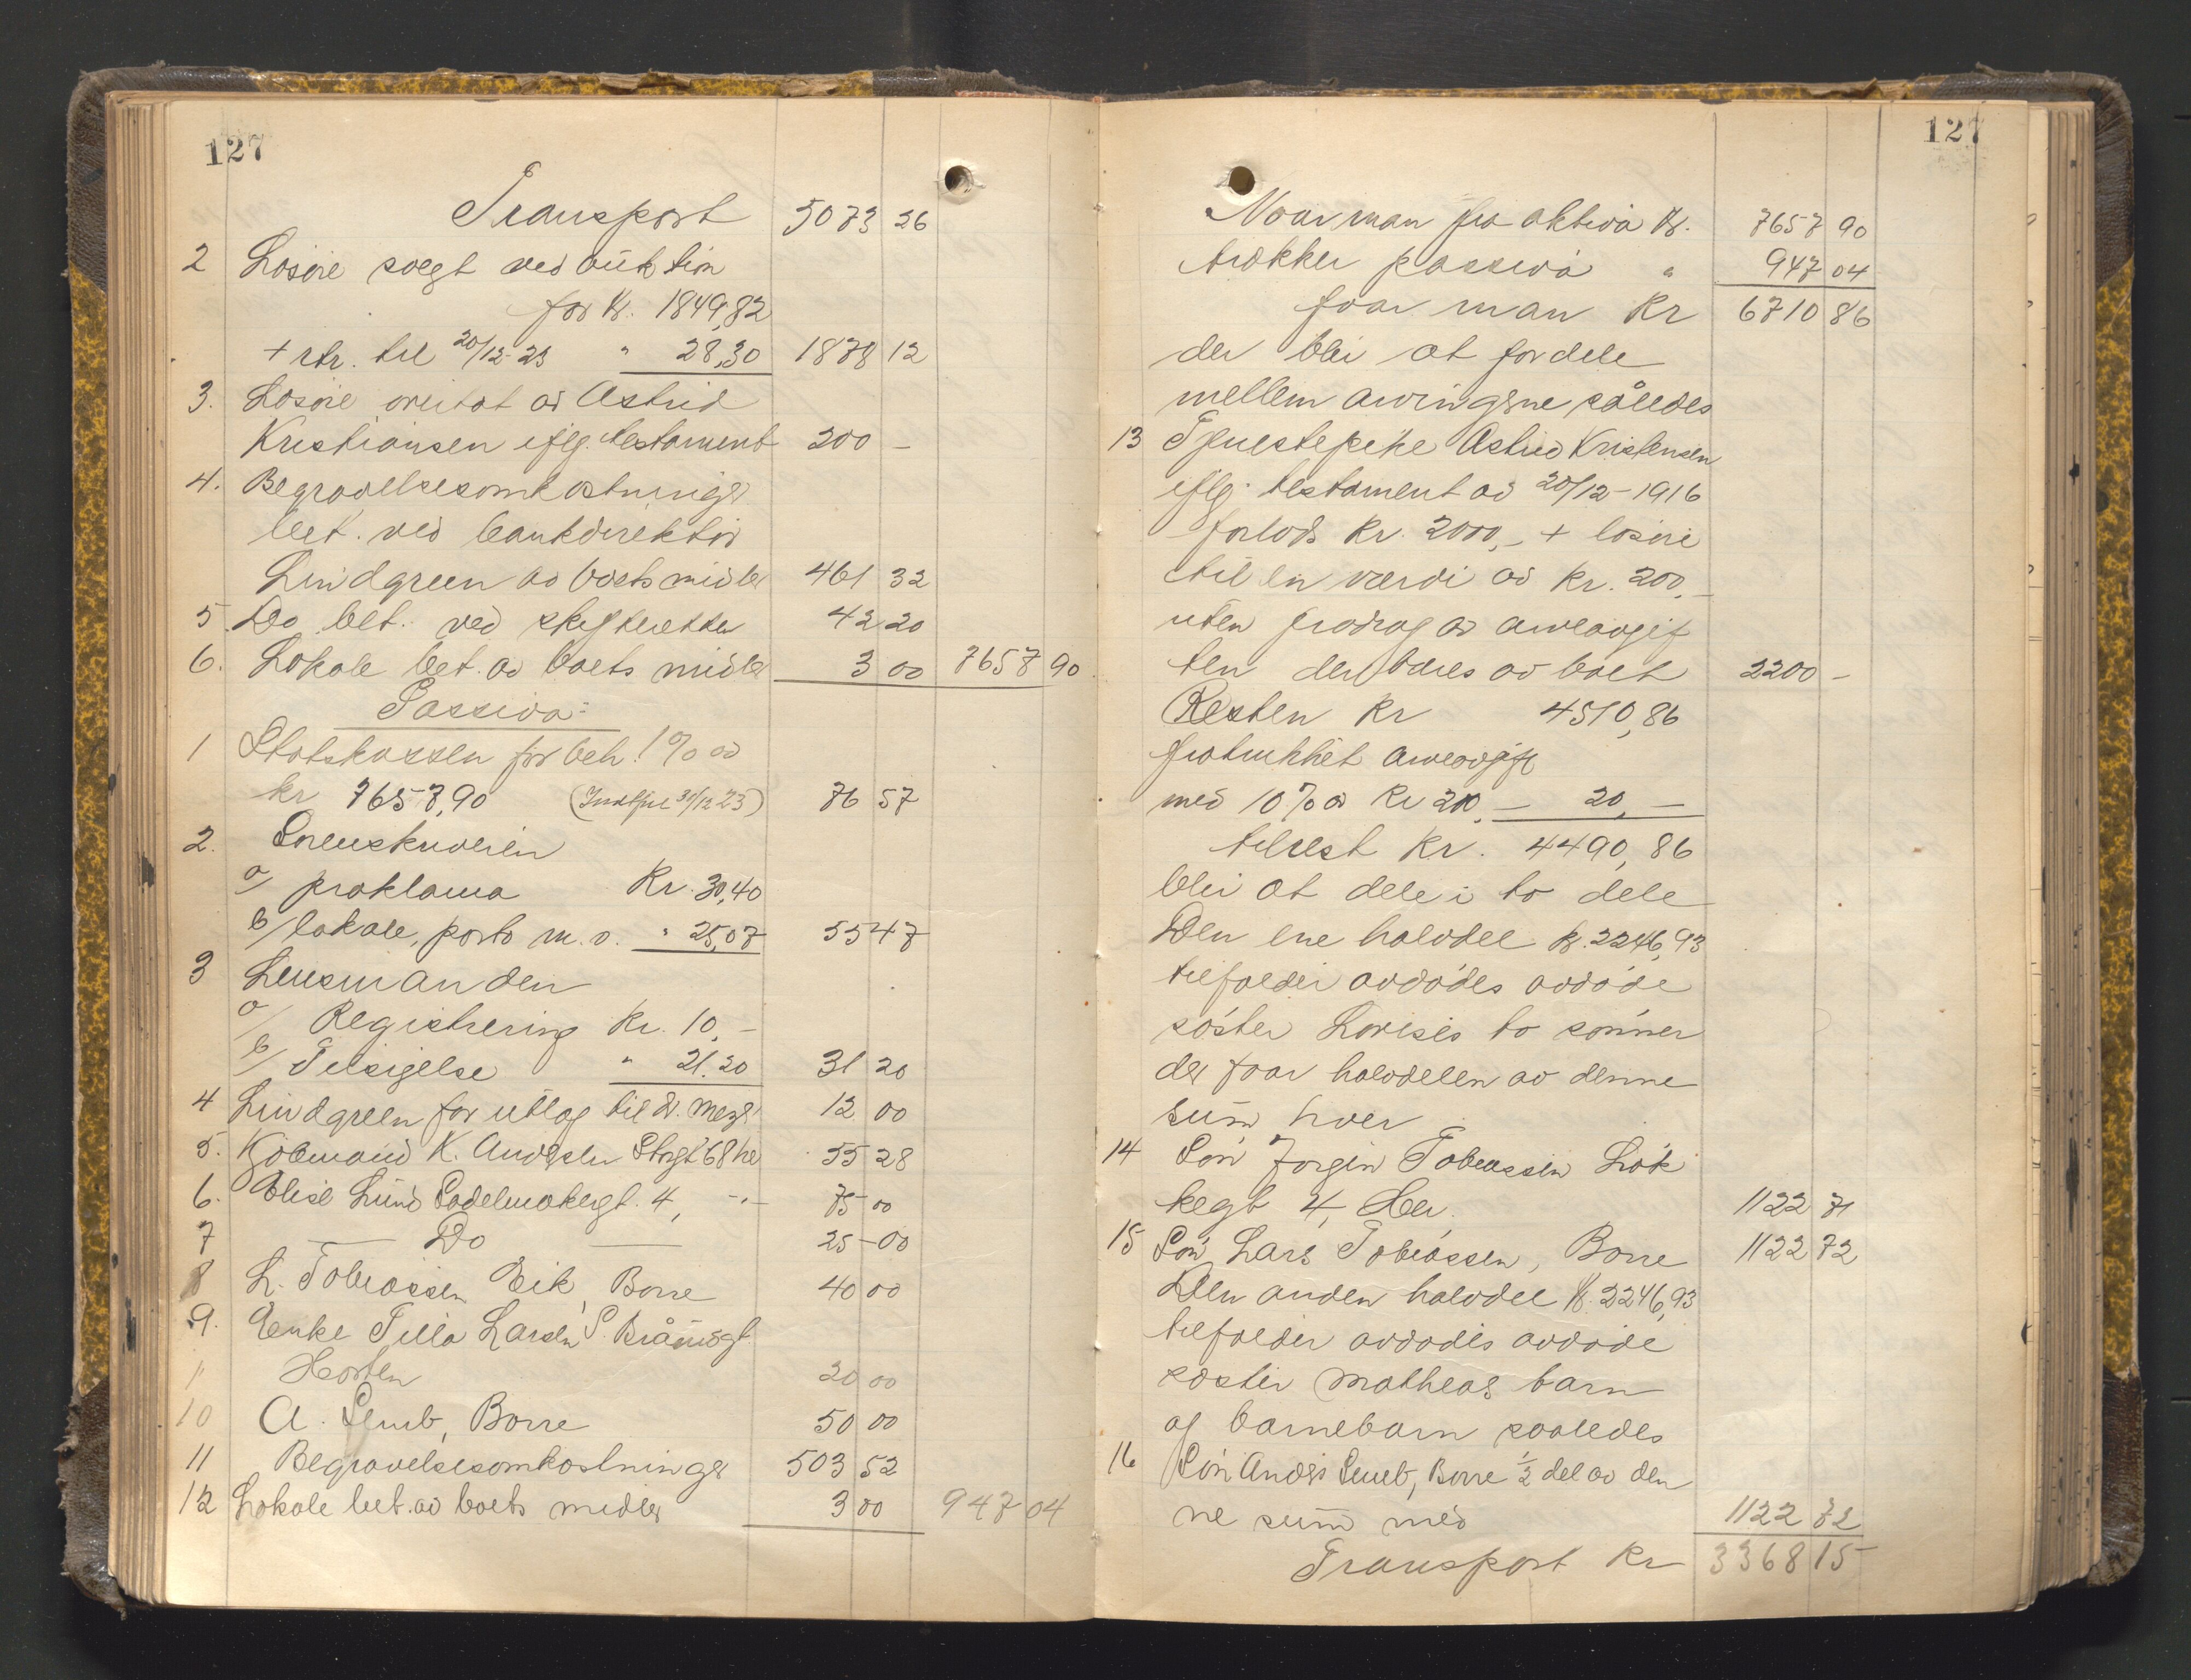 127
Transport 5073 26
2 Løsøre solgt ved auktion
for Kr. 1849,82
+ rtr. til 20/12-23 " 28,30 1878 12
3. Løsøre overtat av Astrid
Kristiansen iflg. testament 200 -
4. Begravelsesomkostninger
bet. ved bankdirektør
Lindgreen av boets midler 461 32
5. Do bet. ved skifteretten 42 20
6. Lokale bet. av boets midler 3 00 7657 90
Passiva:
1 Statskassen for beh. 1% av
kr 7657,90 (Indført 31/12 23) 76 57
2. Sorenskriveren
a/ proklama Kr. 30,40
b/ lokale, porto m.v. " 25,07 55 47
3 Lensmanden
a/ Registrering Kr. 10,-
b/ Tilsigelse " 21.20 31 20
4 Lindgreen for utlæg til dr. 12 00
5. Kjøbmand K. Andersen Storgt 68 her 55 28
6. Elise Lund Sadelmakergt. 4, -"- 75 00
7 Do 25-00
8 L. Tobiassen Eik, Borre 40 00
9. Enke Tilla Larsen S. Bråtengt.
Horten 20 00
10 A. Semb, Borre 50 00
11 Begravelsesomkostninger 503 52
12 Lokale bet. av boets midler 3 00 947 04
127
Naar man fra aktiva Kr. 7657 90
trækker passiva " 947 04
faar man Kr 6710 86
der blir at fordele
mellem arvingene således
13 Tjenestepike Astrid Kristensen
iflg. testament av 20/12-1916
forlods Kr. 2000,- + løsøre
til en værdi av Kr. 200,-
uten fradrag av arveavgif
ten der bæres av boet 2200 -
Resten Kr 4510,86
fratrukket arveavgift
med 10% av Kr 200,- 20,-
tilrest Kr. 4490,86
blir at dele i to dele
Den ene halvdel Kr. 2246,93
tilfalder avdødes avdøde
søster Lovises to sønner
der faar halvdelen av denne
sum hver
14 Søn Jørgen Tobiassen Løk
kegt 4, Her, 1122 71
15 Søn Lars Tobiassen, Borre 1122 72
Den anden halvdel Kr. 2246,93
tilfalder avdødes avdøde
søster Matheas barn
og barnebarn saaledes
16 Søn Anders Semb, Borre 1/2 del av den
ne sum med 1122 72
Transport Kr 3368 15